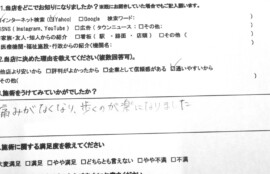 1.当店をどこでお知りになりましたか？実際にお聞きしていた場合でもご記入願います。
インターネット検索 (☑Yahoo! □Google 検索ワード:
SNS(Instagram、YouTube) □広告(タウンニュース:□その他:
家族・友人・知人からの紹介 □看板( 駅 ・ 線面 ・ 店頭 ) □その他(
医療機関・福祉施設・行政からの紹介(機関名:
2.当店に決めた理由を教えてください(複数回答可)。
他店より安いから □評判がよかったから □企業として信頼感がある ☑通いやすいから
その他(
3.施術をうけてみていかがでしたか？
痛みがなくなり、歩くのが楽になりました
施術に関する満足度を教えてください
大変満足 □満足 □やや満足 □どちらとも言えない □やや不満 □不満